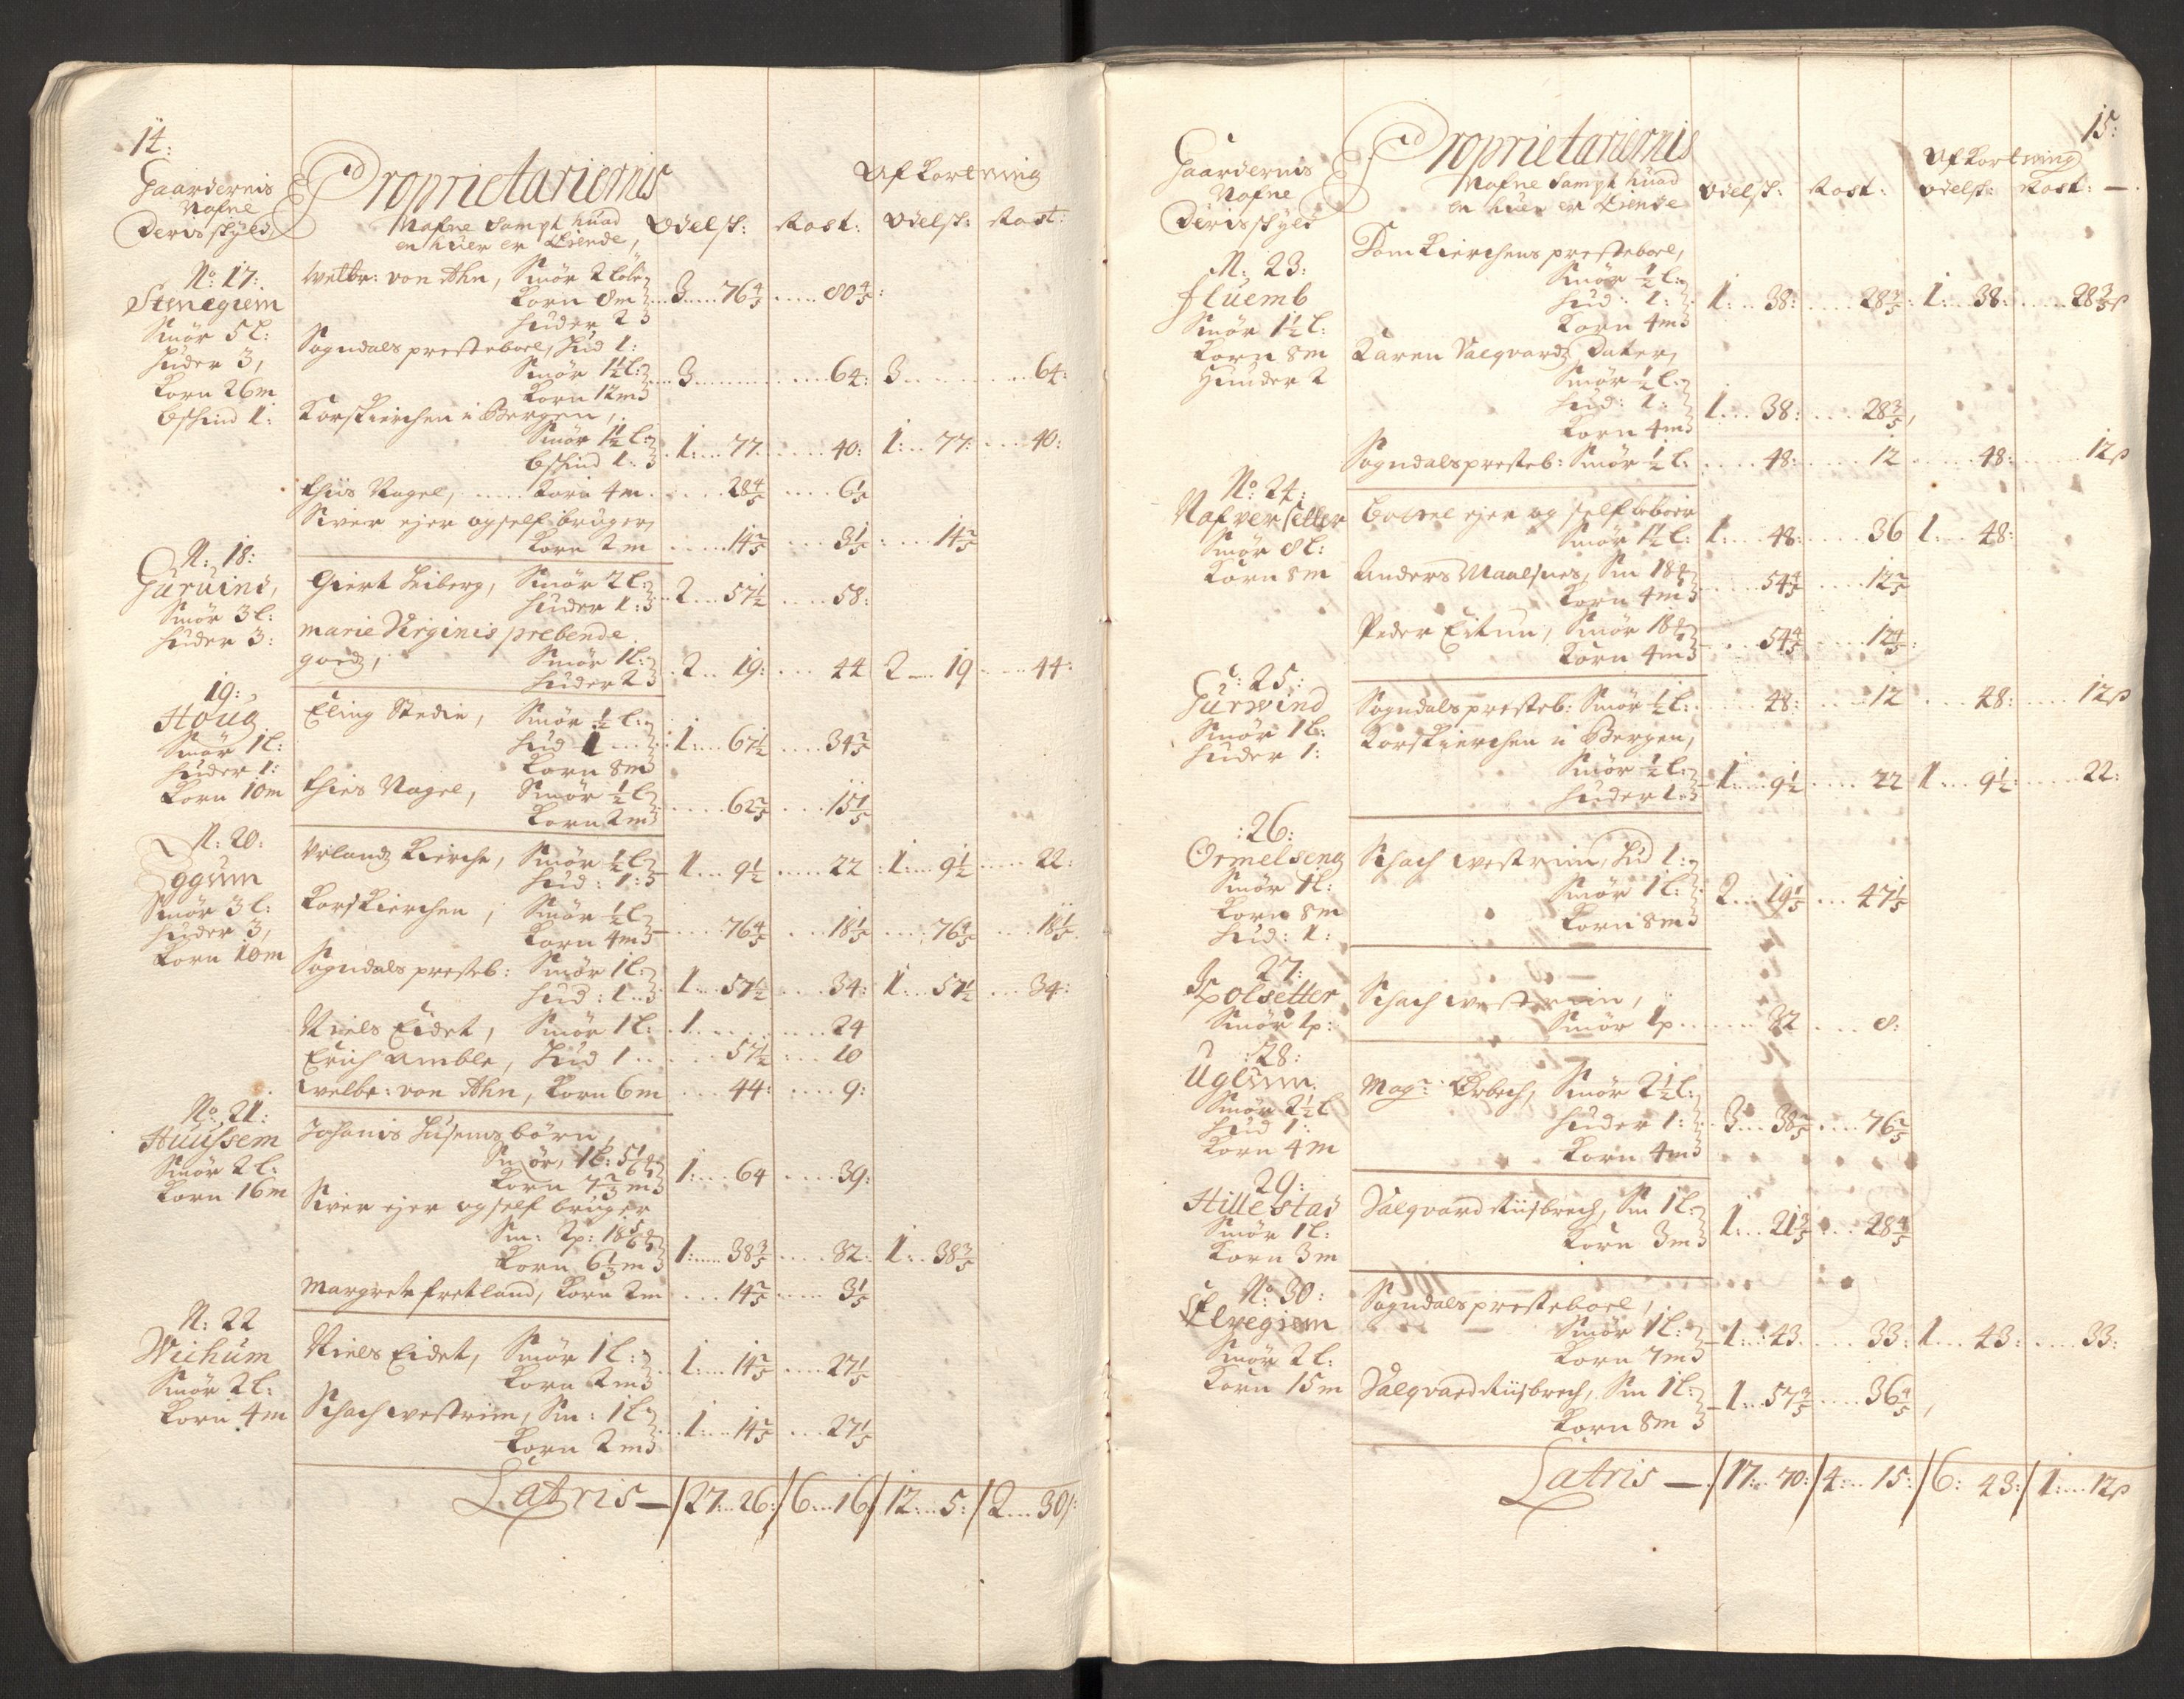 14:
Gaardernis
Nafne
Deris skyld
Proprietariernis
Nafne sampt huad
en huer er Eiende,
Odelsk:
Rost:
Afkortning
Odelsk:
Rost:
No: 17:
Stenegiem
Smör 5 l:
huder 3,
Korn 26 m
bskind 1:
Welbr: von Ahn, Smör 2 löber
Korn 8 m
huder 2
3 .... 76 4/5 ..... 80 4/5:
Sogndals presteboel, Hud 1:
Smör 1 1/2 l:
Korn 12 m
3 ............ 64: 3 ............ 64:
Korskierchen i Bergen,
Smör 1 1/2 l:
bskind 1:
1: .... 77 ..... 40: 1: ... 77: .... 40:
Thiis Nagel, ...... Korn 4 m ...... 28 4/5 ..... 6 2/5
Siver ejer og self bruger,
Korn 2 m ...... 14 2/5 ... 3 1/5 : .... 14 2/5
N: 18:
Guruind,
Smör 3 l:
huder 3:
Giert Leiberg, Smör 2 l:
huder 1:
2 ... 57 1/2 ..... 58:
Marie Virginis prebende
goedz, Smör 1 l:
huder 2
2 .. 19: .... 44 2 .... 19 ... 44:
19:
Houg
Smör 1 l:
huder 1:
Korn 10 m
Eling Stedie, Smör 1/2 l:
Hud 1 ...
Korn 8 m
1: ... 67 1/2 .... 34 2/5
Thies Nagel, Smör 1/2 l
Korn 2 m
..... 62 2/5 .... 15 1/5
N: 20:
Eggum
Smör 3 l:
huder 3,
Korn 10 m
Urlandz Kierche, Smör 1/2 l
Hud: 1:
1 ... 9 1/2 ..... 22 : 1: ... 9 1/2 ..... 22:
Korskierchen, Smör 1/2 l
Korn 4 m
.... 76 4/5 ... 18 1/5 .... 76 4/5 .... 18 1/5
Sogndals presteb: Smör 1 l:
Hud: 1
1 ... 57 1/2 .... 34: 1: ... 57 1/2 ... 34:
Niels Eidet, Smör 1 l: . 1 ..... ..... 24
Erich Amble, Hud 1 .. .... 57 1/2 : ... 10
Welbr: von Ahn, Korn 6 m ... 44: .... 9:
No: 21:
Huussem
Smör 2 l:
Korn 16 m
Johanis Husems börn,
Smör, 1 l: 5 1/6
Korn 7 2/3 m
1: ... 64 .... 39:
Siver ejer og self bruger
Sm: 2 p: 18 5/6
Korn 6 1/3 m
1: .... 38 3/5 .... 32: 1: .. 38 3/5
Margrete Fretland, Korn 2 m ... 14 2/5 ..... 3 1/5
N: 22
Wichum
Smör 2 l:
Korn 4 m
Niels Eidet, Smör 1 l:
Korn 2 m
1: ... 14 2/5 .... 27 1/5
Schach westrim, Sm: 1 l
Korn 2 m
1: .... 14 2/5 ... 27 1/5
Latris — / 27 ... 26: / 6 ... 16 / 12 ... 5: / 2 .... 30 /:
15:
Gaardernis
Nafne
Deris skyld
Proprietariernis
Nafne sampt huad
en huer er Eiende
Odelsk:
Rost:
Afkortning
Odelsk:
Rost: —
N: 23:
Fluemb
Smör 1 1/2 l:
Korn 8 m
Huuder 2
Domkierchens presteboel,
Smör 1/2 l:
Hud: 1:
Korn 4 m
1: ... 38: ..... 28 3/5: 1: ... 38: ..... 28 3/5 ß
Karen Valqvardz Dater,
Smör 1/2 l:
Hud: 1:
Korn 4 m
1 ... 38: .... 28 3/5,
Sogndals presteb: Smör 1/2 l: ..... 48: ..... 12 ..... 48: ..... 12 ß
No: 24:
Nafversetter
Smör 8 l:
Korn 8 m
ejer og self beboer
Smör 1 1/2 l: 1: ... 48: ..... 36 1: ... 48:
Anders Maalsnes, Sm 18
Korn 4 m
..... 54 4/5 .... 12 2/5
Peder Eitun, Smör 18
Korn 4 m
.... 54 4/5 .... 12 4/5:
: 25:
Gurwind
Smör 1 l:
huder 1:
Sogndals presteb: Smör 1/2 l: ..... 48: ..... 12 .... 48: ..... 12 ß
Korskierchen i Bergen,
Smör 1/2 l:
huder 1:
1: .... 9 1/2 ..... 22 1 ... 9 1/2: ..... 22:
: 26:
Ormelseng
Smör 1 l:
Korn 8 m
Hud: 1:
Schach westrim, Hud 1:
Smör 1 l:
Korn 8 m
2 ... 19 1/5 ... 47 1/5
27:
Spolsetter
Smör 1 p:
Schach westrim,
Smör 1 p ...... 32 .... 8:
: 28:
Uglum
Smör 2 1/2 l
Hud 1:
Korn 4 m
Magr: Erbech, Smör 2 1/2 l:
huder 1:
Korn 4 m
3 ... 38 2/5 .... 76 2/5
29:
Hillestad
Smör 1 l:
Korn 3 m
Valqvard Riisbrech, Sm 1 l:
Korn 3 m
1: .. 21 3/5 ... 28 4/5
No: 30:
Elvegiem
Smör 2 l:
Korn 15 m
Sogndals presteboel,
Smör 1 l:
Korn 7 m
1: ... 43 ..... 33: 1 .... 43: ..... 33:
Valqvard Riisbrech, Sm 1 l:
Korn 8 m
1: .. 57 3/5 .... 36 4/5,
Latris — / 17: .. 70: / 4: ... 15: / 6: 43: / 1: .... 12 ß